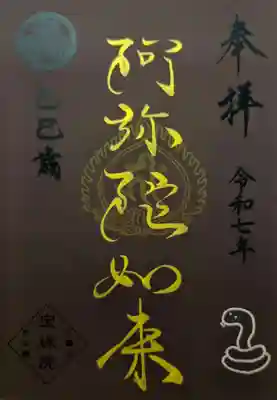 奉拝
令和七年
阿弥陀如来
乙巳歳